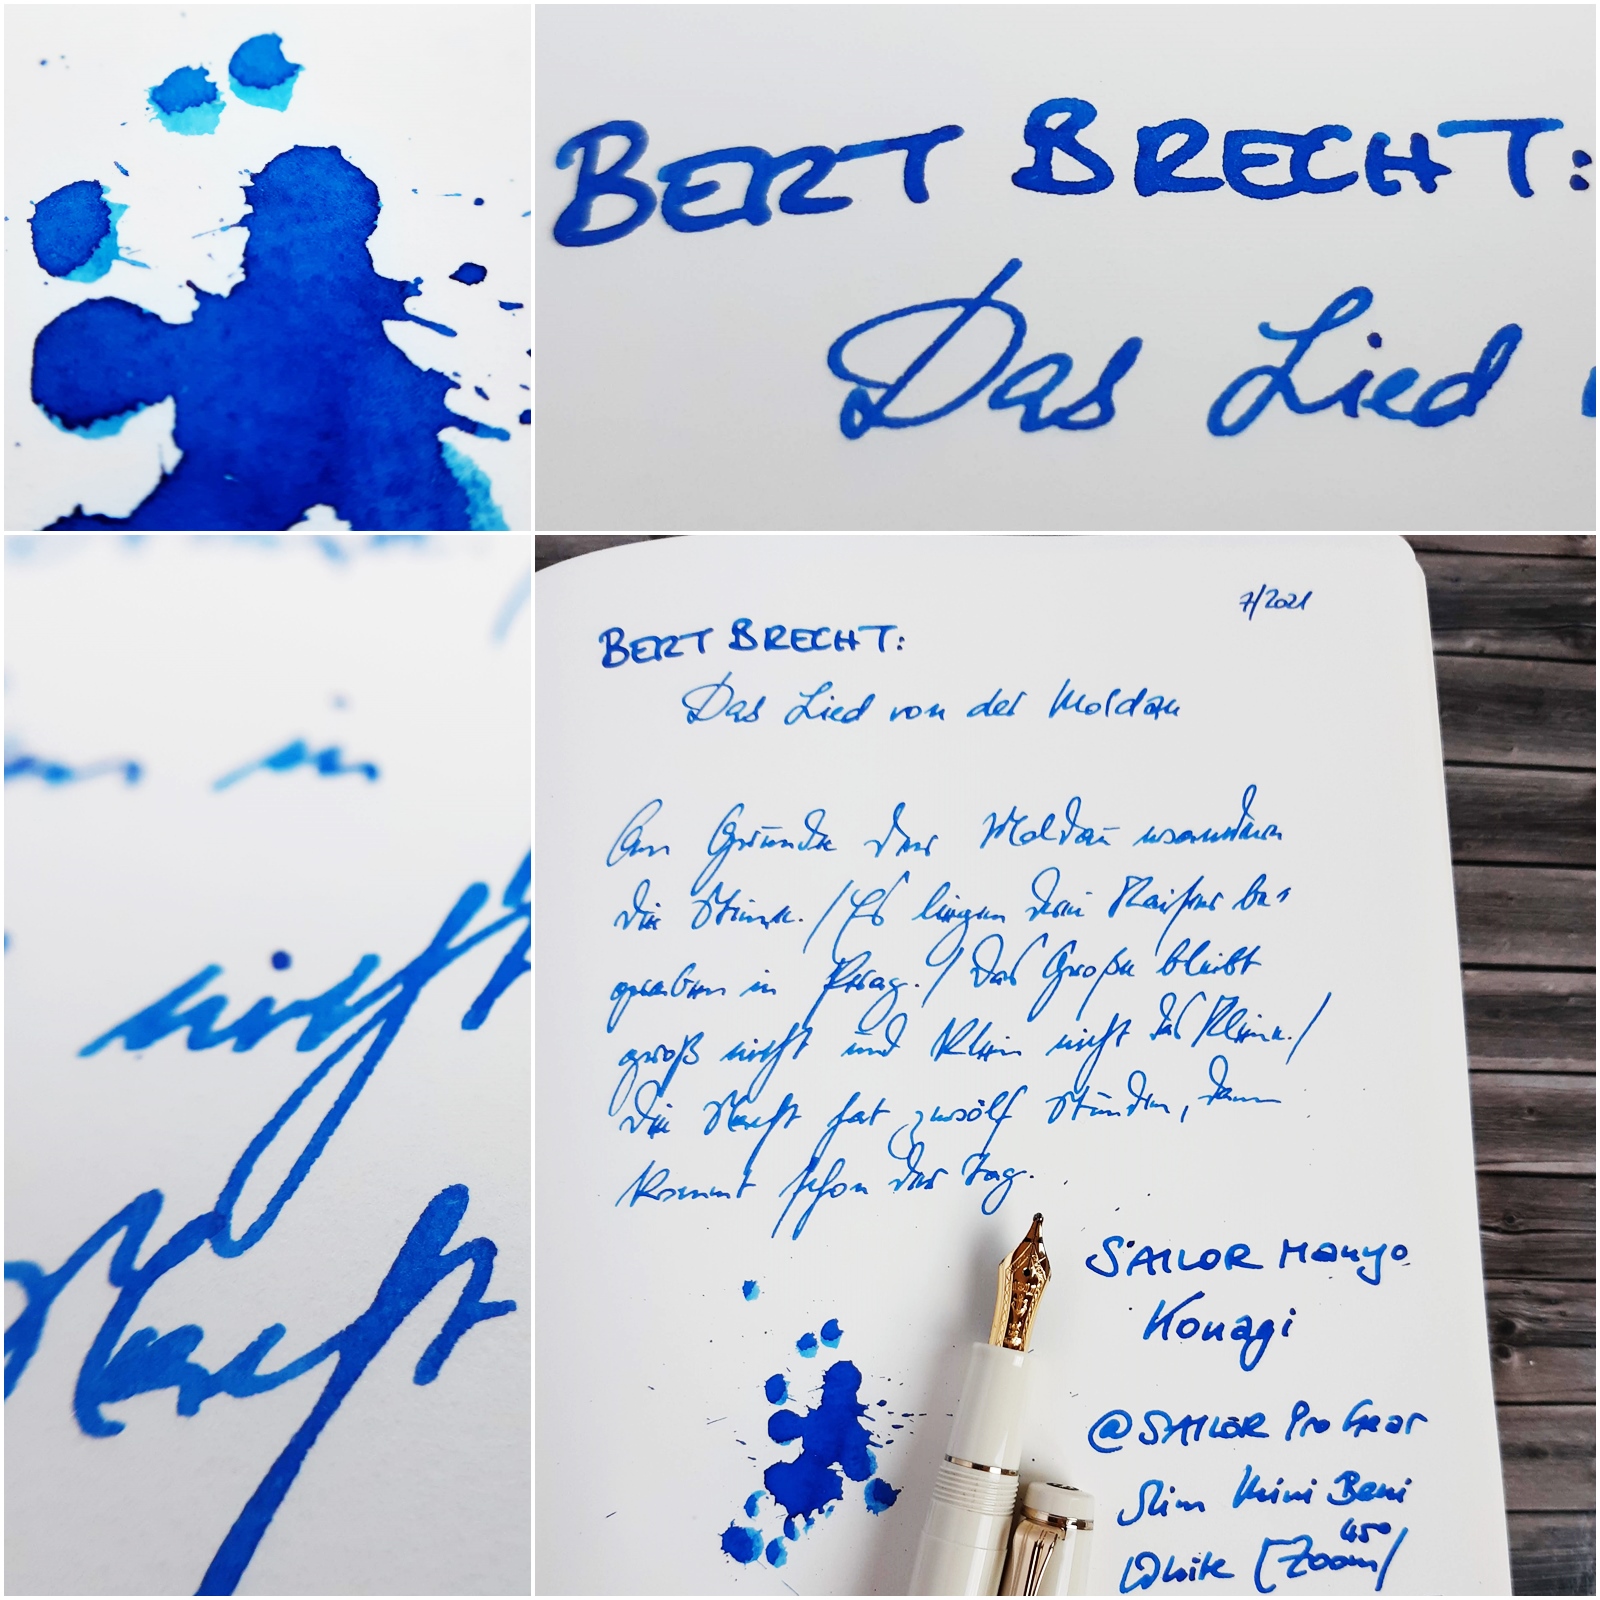 BERT BRECHT:
Das Lied
in
nicht
Nacht
7/2021
BERT BRECHT:
Das Lied von der Moldau
Am Grunde der Moldau wandern
die Steine. / Es liegen drei Kaiser be-
graben in Prag. / Das Große bleibt
groß nicht und klein nicht das Kleine. /
Die Nacht hat zwölf Stunden, dann
kommt schon der Tag.
SAILOR Manyo
Konagi
@SAILOR Pro Gear
Slim Mini Beni
White (Zoom)